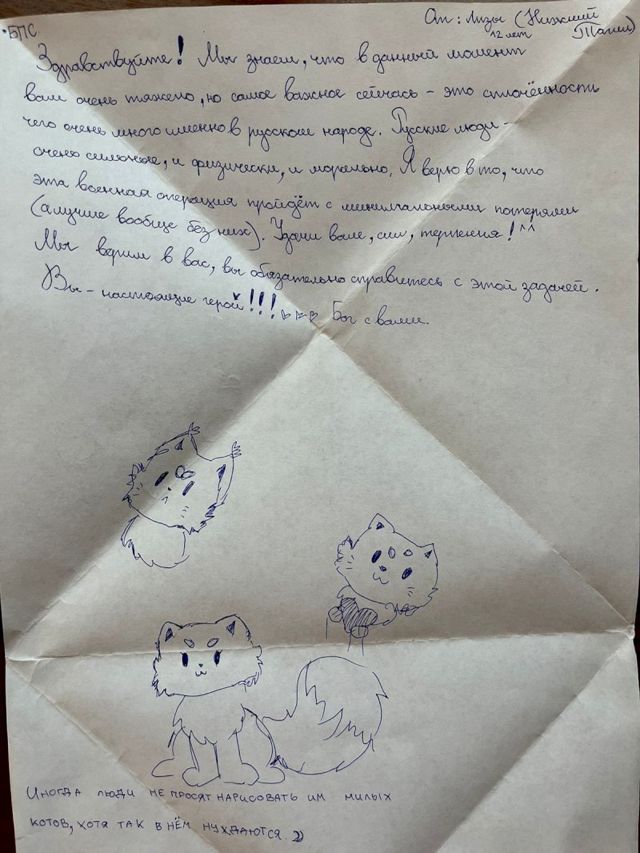 БПС
От: Лизы (Нижний
12 лет Тагил)
Здравствуйте! Мы знаем, что в данный момент
вам очень тяжело, но самое важное сейчась - это сплочённость
чего очень много именно в русском народе. Русские люди -
очень сильные, и физически, и морально. Я верю в то, что
эта военная операция пройдёт с минимальными потерями
(а лучше вообще без них). Удачи вам, сил, терпения! ^^
Мы верим в вас, вы обязательно справитесь с этой задачей.
Вы - настоящие герои!!! Бог с вами.
ИНОГДА ЛЮДИ НЕ ПРОСЯТ НАРИСОВАТЬ ИМ МИЛЫХ
КОТОВ, ХОТЯ ТАК В НЁМ НУЖДАЮТСЯ